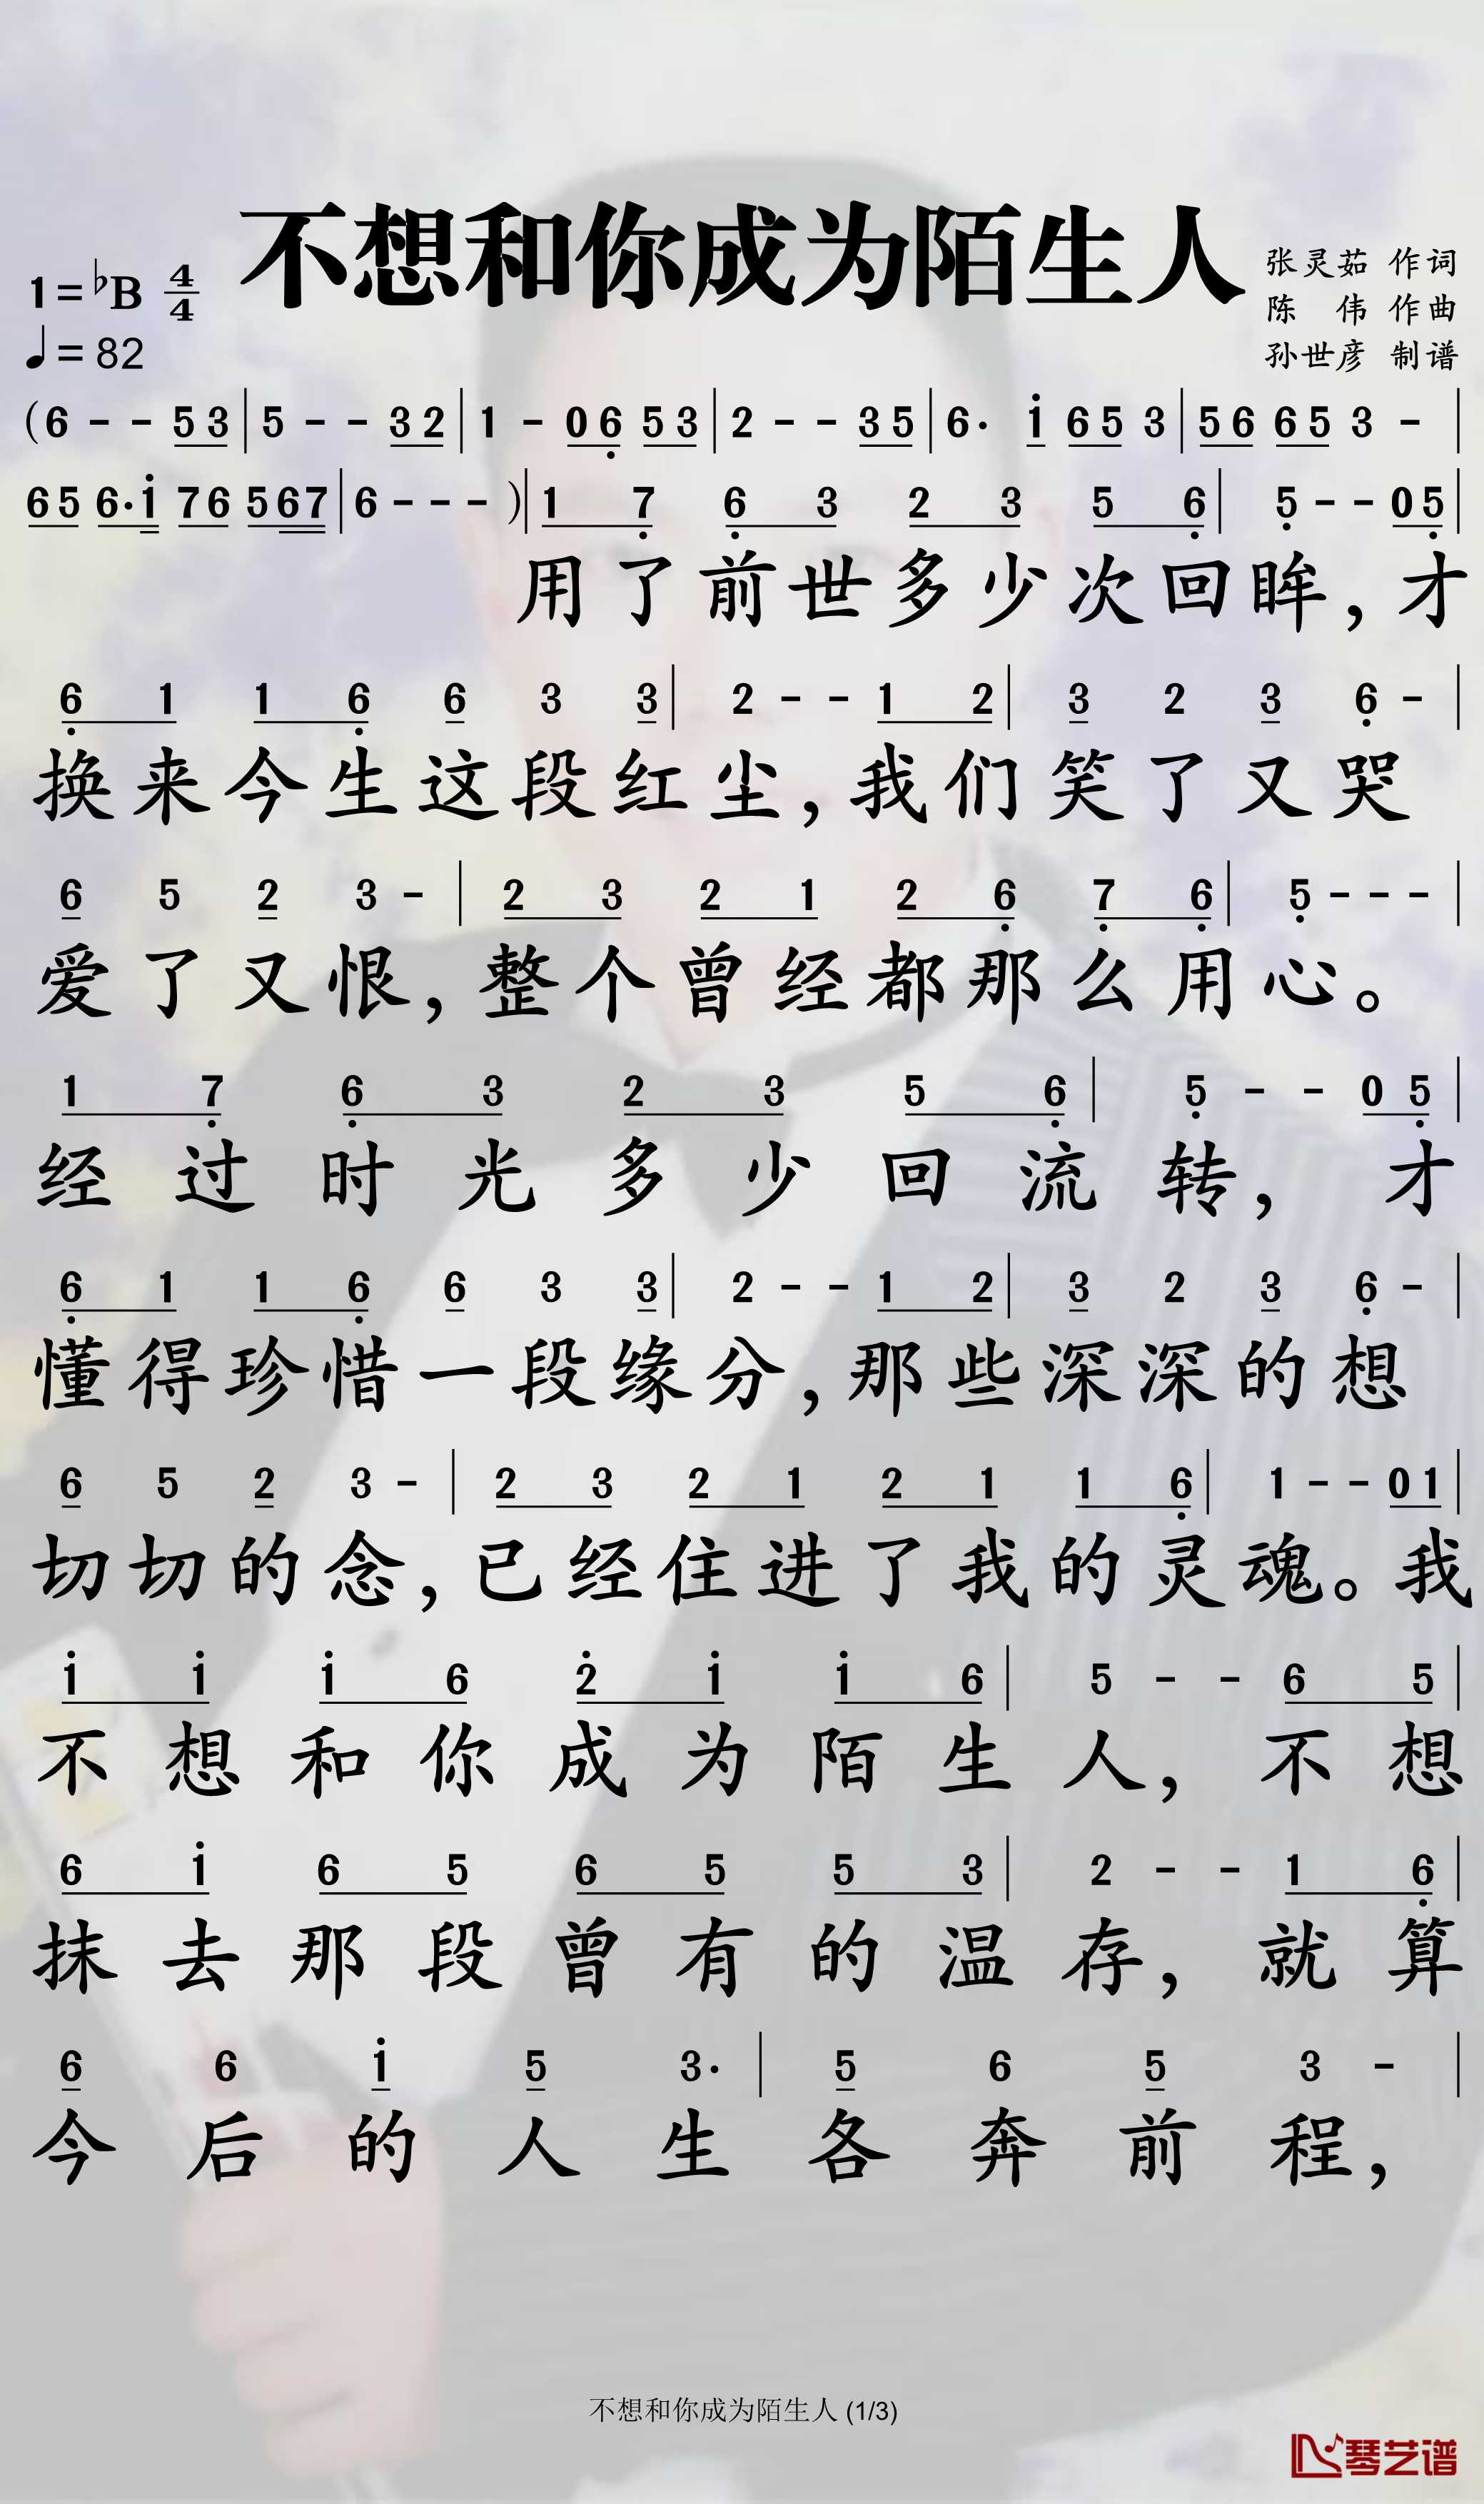 不想和你成为陌生人
张灵茹 作词
陈 伟 作曲
孙世彦 制谱
1=♭B 4/4
♩=82
(6 - - 5 3 | 5 - - 3 2 | 1 - 0 6̣ 5 3 | 2 - - 3 5 | 6· i̇ 6 5 3 | 5 6 6 5 3 - |
6 5 6·i̇ 7 6 5 6 7 | 6 - - - )| 1 7̣ 6̣ 3 2 3 5 6̣ | 5̣ - - 0 5̣ |
用了前世多少次回眸,才
6̣ 1 1 6̣ 6 3 3 | 2 - - 1 2 | 3 2 3 6̣ - |
换来今生这段红尘,我们笑了又哭
6 5 2 3 - | 2 3 2 1 2 6̣ 7̣ 6̣ | 5̣ - - - |
爱了又恨,整个曾经都那么用心。
1 7̣ 6̣ 3 2 3 5 6̣ | 5̣ - - 0 5̣ |
经过时光多少回流转,才
6̣ 1 1 6̣ 6 3 3 | 2 - - 1 2 | 3 2 3 6̣ - |
懂得珍惜一段缘分,那些深深的想
6 5 2 3 - | 2 3 2 1 2 1 1 6̣ | 1 - - 0 1 |
切切的念,已经住进了我的灵魂。我
i̇ i̇ i̇ 6 2̇ i̇ i̇ 6 | 5 - - 6 5 |
不想和你成为陌生人,不想
6 i̇ 6 5 6 5 5 3 | 2 - - 1 6̣ |
抹去那段曾有的温存,就算
6 6 i̇ 5 3· | 5 6 5 3 - |
今后的人生各奔前程,
不想和你成为陌生人 (1/3)
琴艺谱